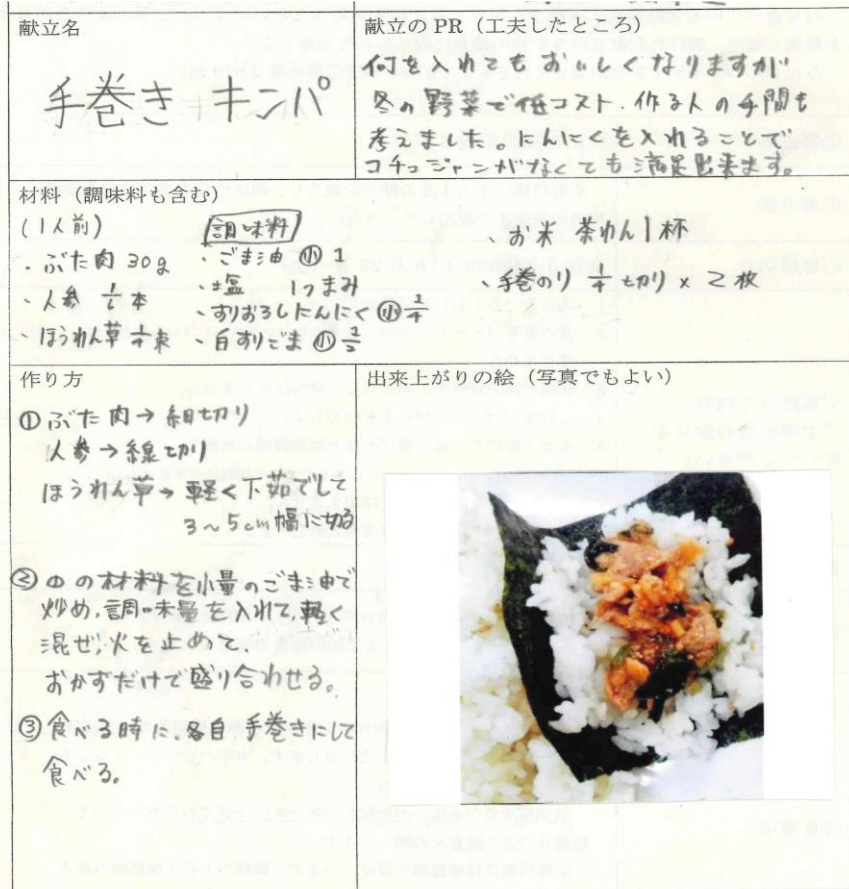 献立名
手巻きキンパ
献立の PR（工夫したところ）
何を入れてもおいしくなりますが
冬の野菜で低コスト、作る人の手間も
考えました。にんにくを入れることで
コチュジャンがなくても満足出来ます。
材料（調味料も含む）
(1人前)
・ぶた肉 30g
・人参 本
・ほうれん草 束
調味料
・ごま油 小 1
・塩 1つまみ
・すりおろしにんにく 小
・白すりごま 小
・お米 茶わん1杯
・手巻のり 切り × 2枚
作り方
① ぶた肉→細切り
人参→線切り
ほうれん草→軽く下茹でして
3〜5cm幅に切る
② の材料を小量のごま油で
炒め、調味量を入れて、軽く
混ぜ、火を止めて、
おかずだけで盛り合わせる。
③ 食べる時に、各自、手巻きにして
食べる。
出来上がりの絵（写真でもよい）